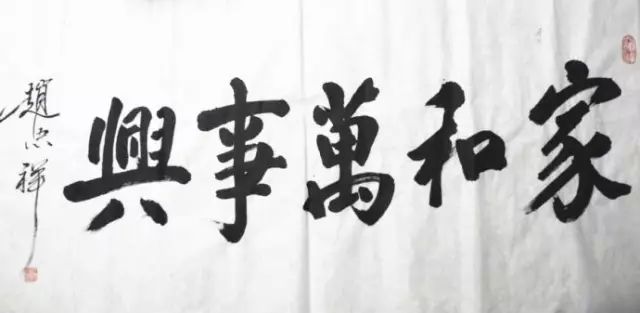 家和萬事興
趙忠祥